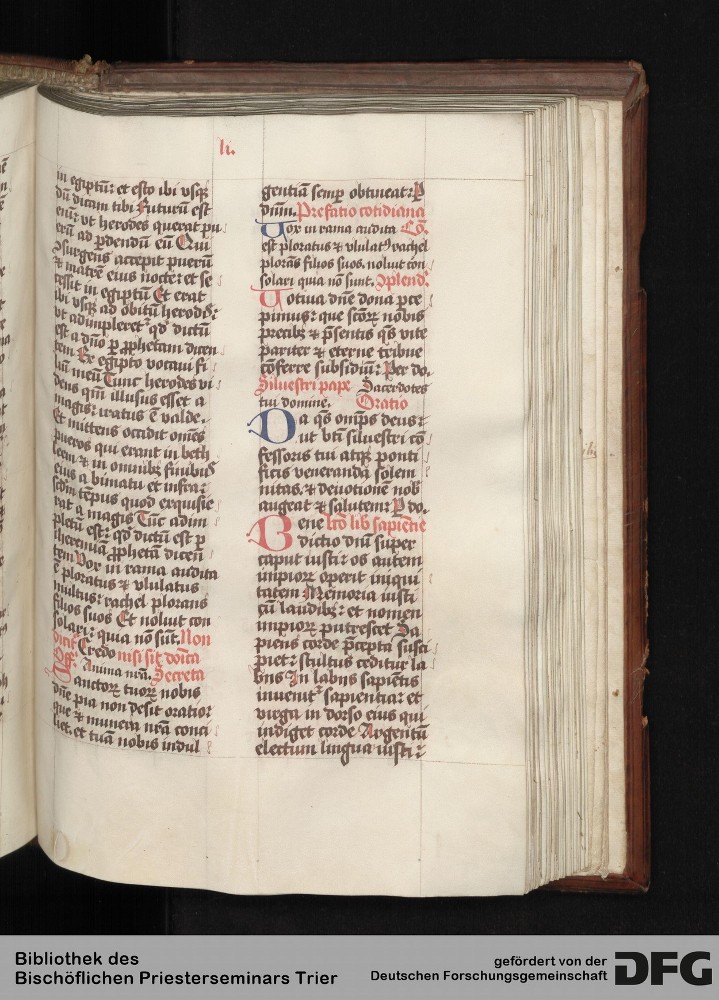 li.
in egiptū: et esto ibi vsqꝫ
dū dicam tibi Futurū est
enī: vt herodes querat pu
erū ad ꝑdendū eū Qui
ꝯsurgens accepit puerū
⁊ matrē eius nocte: et se
cessit in egiptū Et erat
ibi vsqꝫ ad obitū herodis:
vt adimpleret᷑ qd̓ dictū
est a dn̄o ꝑ ꝓphetam dicen
tem Ex egipto vocaui fi
liū meū Tunc herodes vi
dens qm̄ illusus esset a
magis: iratus ē valde.
Et mittens occidit om̄es
pueros qui erant in beth
leem ⁊ in omnibꝫ finibꝰ
eius a bimatu et infra:
scd̓m tēpus quod exquisie
rat a magis Tūc adim
pletū est: qd̓ dictū est ꝑ
iheremiā ꝓphetā dicen
tem Vox in rama audita
ē ploratus ⁊ vlulatus
multus: rachel plorans
filios suos Et noluit con
solari: quia nō sūt. Non
dicit᷑ Credo nisi sit dōica
Off. Anima nrā. Secreta
Sanctorꝝ tuorꝝ nobis
dn̄e pia non desit oratio:
que ⁊ munera nrā conci
liet. et tuā nobis indul
gentiā semꝑ obtineat: P
dn̄m. Prefatio cotidiana
Vox in rama audita Cō.
est ploratus ⁊ vlulatꝰ rachel
plorās filios suos. noluit con
solari quia nō sunt. ꝯplend̓.
Votiua dn̄e dona ꝑce
pimus: que sc̄orꝝ nobis
precibꝫ ⁊ p̄sentis qs̄ vite
pariter ⁊ eterne tribue
cōferre subsidiū: Per do.
Siluestri pape Sacerdotes
tui domine. Oratio
Da qs̄ omp̄s deus:
ut bt̄i siluestri cō
fessoris tui atqꝫ ponti
ficis veneranda solem
nitas. ⁊ deuotionē nob̓
augeat ⁊ salutem: P do.
Bene lcō lib̓ sapientie
dictio dn̄i super
caput iusti: os autem
impiorꝝ operit iniqui
tatem Memoria iusti
cū laudibꝫ: et nomen
impiorꝝ putrescet Sa
piens corde p̄cepta susci
piet: stultus ceditur la
biis In labiis sapiētis
inuenit᷑ sapientia: et
virga in dorso eius qui
indiget corde Argentū
electum lingua iusti:
Bibliothek des
Bischöflichen Priesterseminars Trier
gefördert von der
Deutschen Forschungsgemeinschaft
DFG